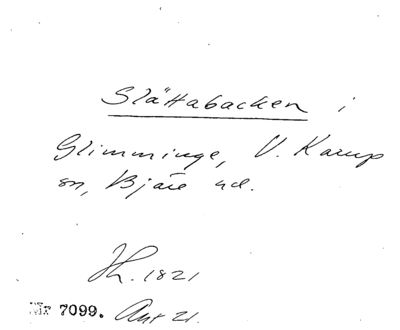 Slättabacken i
Glimminge, V. Karup
sn, Bjäre hd.
Jh. 1821
Nr 7099. Avr 21.